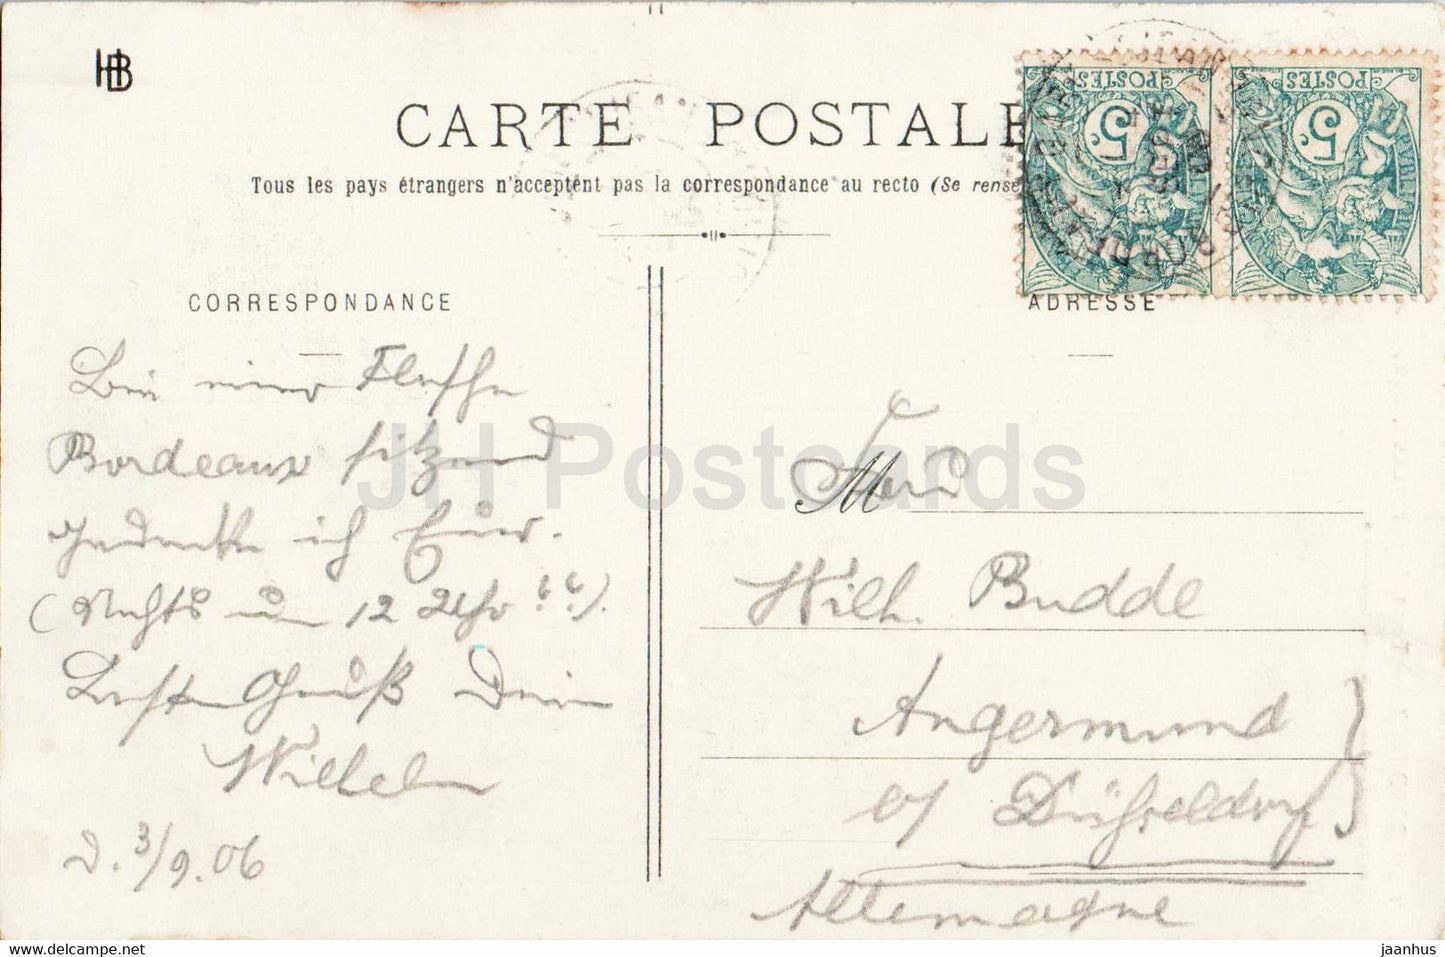 HB
CARTE POSTALE
Tous les pays étrangers n'acceptent pas la correspondance au recto (Se rense
POSTES
5
POSTES
5
CORRESPONDANCE
Bei einer Flasche
Bordeaux sitzend
gedenke ich Euer.
(Nachts um 12 Uhr !!).
Besten Gruß Dein
Wilhelm
d. 3/9.06
ADRESSE
M Herrn
Wilh. Budde
Angermund
b/ Düsseldorf
Allemagne
JH Postcards
www.hippostcard.com
jaanhus